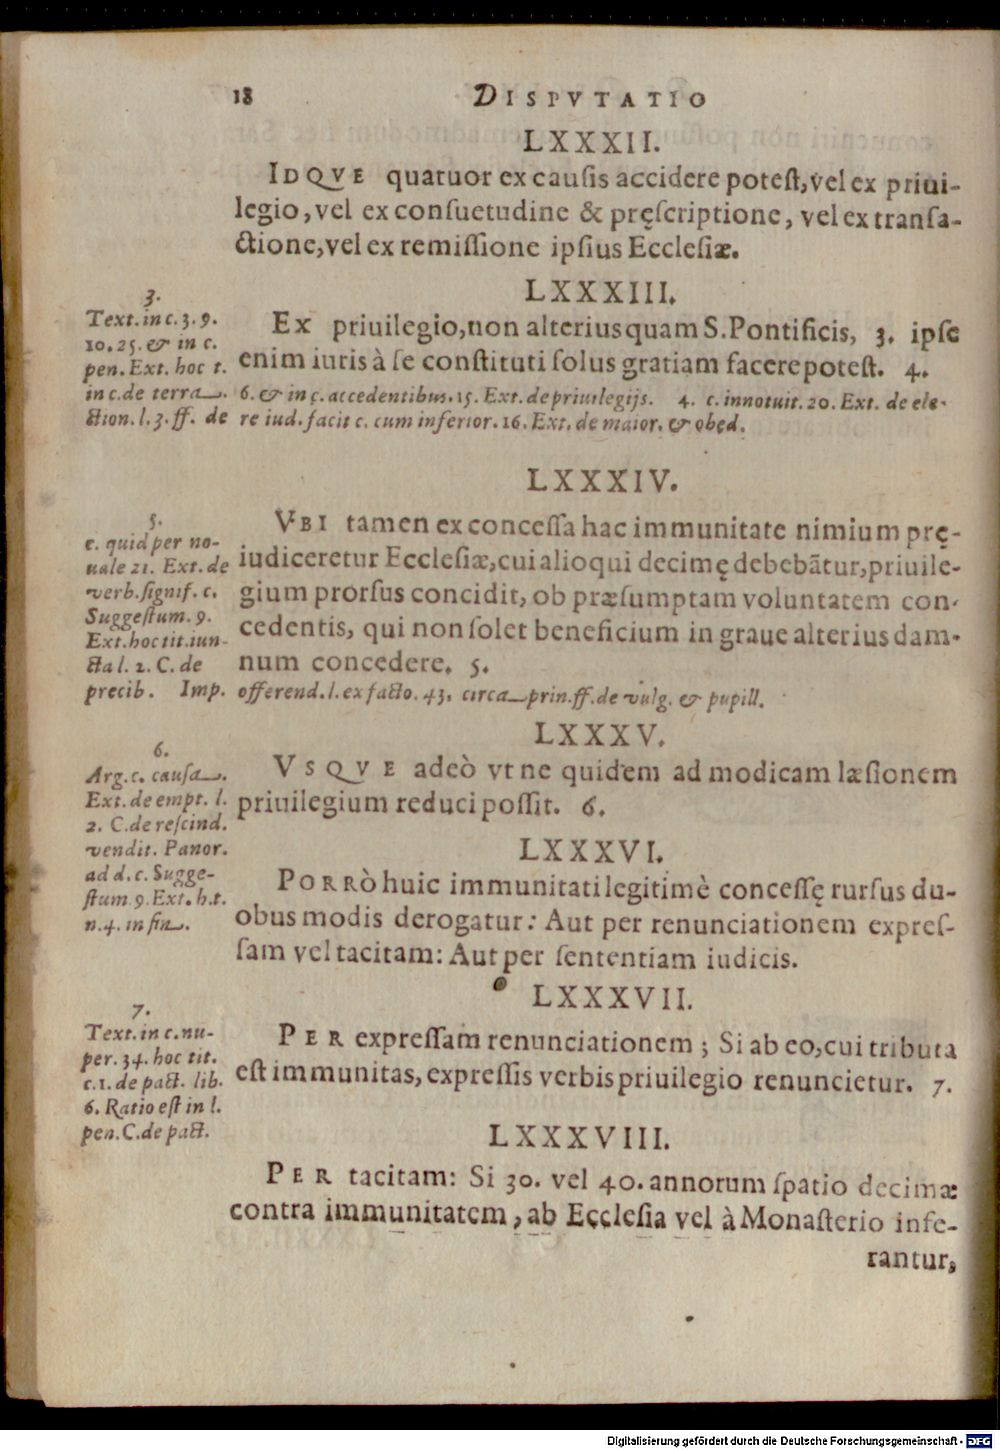 18 DISPVTATIO
LXXXII.
IDQVE quatuor ex causis accidere potest, vel ex priui-
legio, vel ex consuetudine & pręscriptione, vel ex transa-
ctione, vel ex remissione ipsius Ecclesiæ.
LXXXIII.
3.
Text. in c. 3. 9.
10. 25. & in c.
pen. Ext. hoc t.
in c. de terra.
ction. l. 3. ff. de
Ex priuilegio, non alterius quam S. Pontificis, 3. ipse
enim iuris à se constituti solus gratiam facere potest. 4.
6. & in ç. accedentibus. 15. Ext. de priuilegijs. 4. c. innotuit. 20. Ext. de ele-
re iud. facit c. cum inferior. 16. Ext. de maior. & obed.
LXXXIV.
5.
c. quid per no-
uale 21. Ext. de
verb. signif. c.
Suggestum. 9.
Ext. hoc tit. iun-
cta l. 2. C. de
precib. Imp.
VBI tamen ex concessa hac immunitate nimium prę-
iudiceretur Ecclesiæ, cui alioqui decimę debebãtur, priuile-
gium prorsus concidit, ob præsumptam voluntatem con-
cedentis, qui non solet beneficium in graue alterius dam-
num concedere. 5.
offerend. l. ex facto. 43. circa prin. ff. de vulg. & pupill.
LXXXV.
6.
Arg. c. causa.
Ext. de empt. l.
2. C. de rescind.
vendit. Panor.
ad d. c. Sugge-
stum 9. Ext. h. t.
n. 4. in fin.
VSQVE adeò vt ne quidem ad modicam læsionem
priuilegium reduci possit. 6.
LXXXVI.
PORRÒ huic immunitati legitimè concessę rursus du-
obus modis derogatur: Aut per renunciationem expres-
sam vel tacitam: Aut per sententiam iudicis.
LXXXVII.
7.
Text. in c. nu-
per. 34. hoc tit.
c. 1. de pact. lib.
6. Ratio est in l.
pen. C. de pact.
PER expressam renunciationem; Si ab eo, cui tributa
est immunitas, expressis verbis priuilegio renuncietur. 7.
LXXXVIII.
PER tacitam: Si 30. vel 40. annorum spatio decimæ
contra immunitatem, ab Ecclesia vel à Monasterio infe-
rantur,
Digitalisierung gefördert durch die Deutsche Forschungsgemeinschaft - DFG